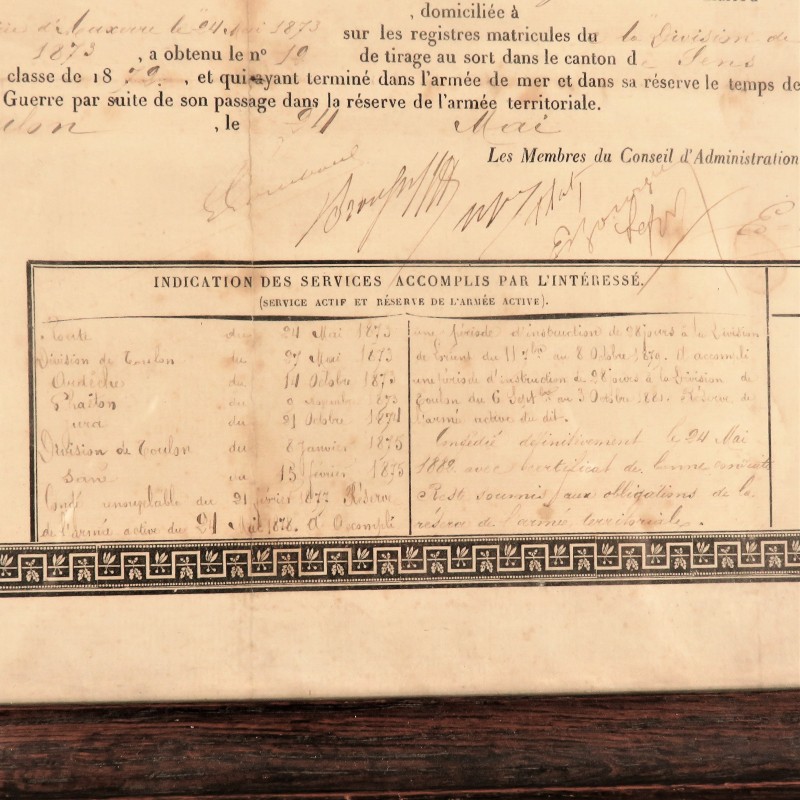 , domiciliée à
24 Mai 1873
sur les registres matricules du la Division de
1873, a obtenu le nº 10 de tirage au sort dans le canton de Sens
classe de 18 72, et qui ayant terminé dans l'armée de mer et dans sa réserve le temps de
Guerre par suite de son passage dans la réserve de l'armée territoriale.
, le 24 Mai
Les Membres du Conseil d'Administration
INDICATION DES SERVICES ACCOMPLIS PAR L'INTÉRESSÉ.
(SERVICE ACTIF ET RÉSERVE DE L'ARMÉE ACTIVE).
du 24 Mai 1873
Division de Toulon du 27 Mai 1873
du 14 Octobre 1873
du 1873
Jura du 21 Octobre 1874
Division de Toulon du 8 Janvier 1875
du 15 février 1875
Congé du 21 février 1877. Réserve
de l'armée active du 24 Mai 1878. A accompli
une période d'instruction de 28 jours à la Division
de du 11 7bre au 8 Octobre 1879. A accompli
une période d'instruction de 28 jours à la Division de
Toulon du 6 Septbre au 3 Octobre 1881. Réserve de
l'armée active du dit.
Congédié définitivement le 24 Mai
1882 avec certificat de bonne conduite
Reste soumis aux obligations de la
réserve de l'armée territoriale.